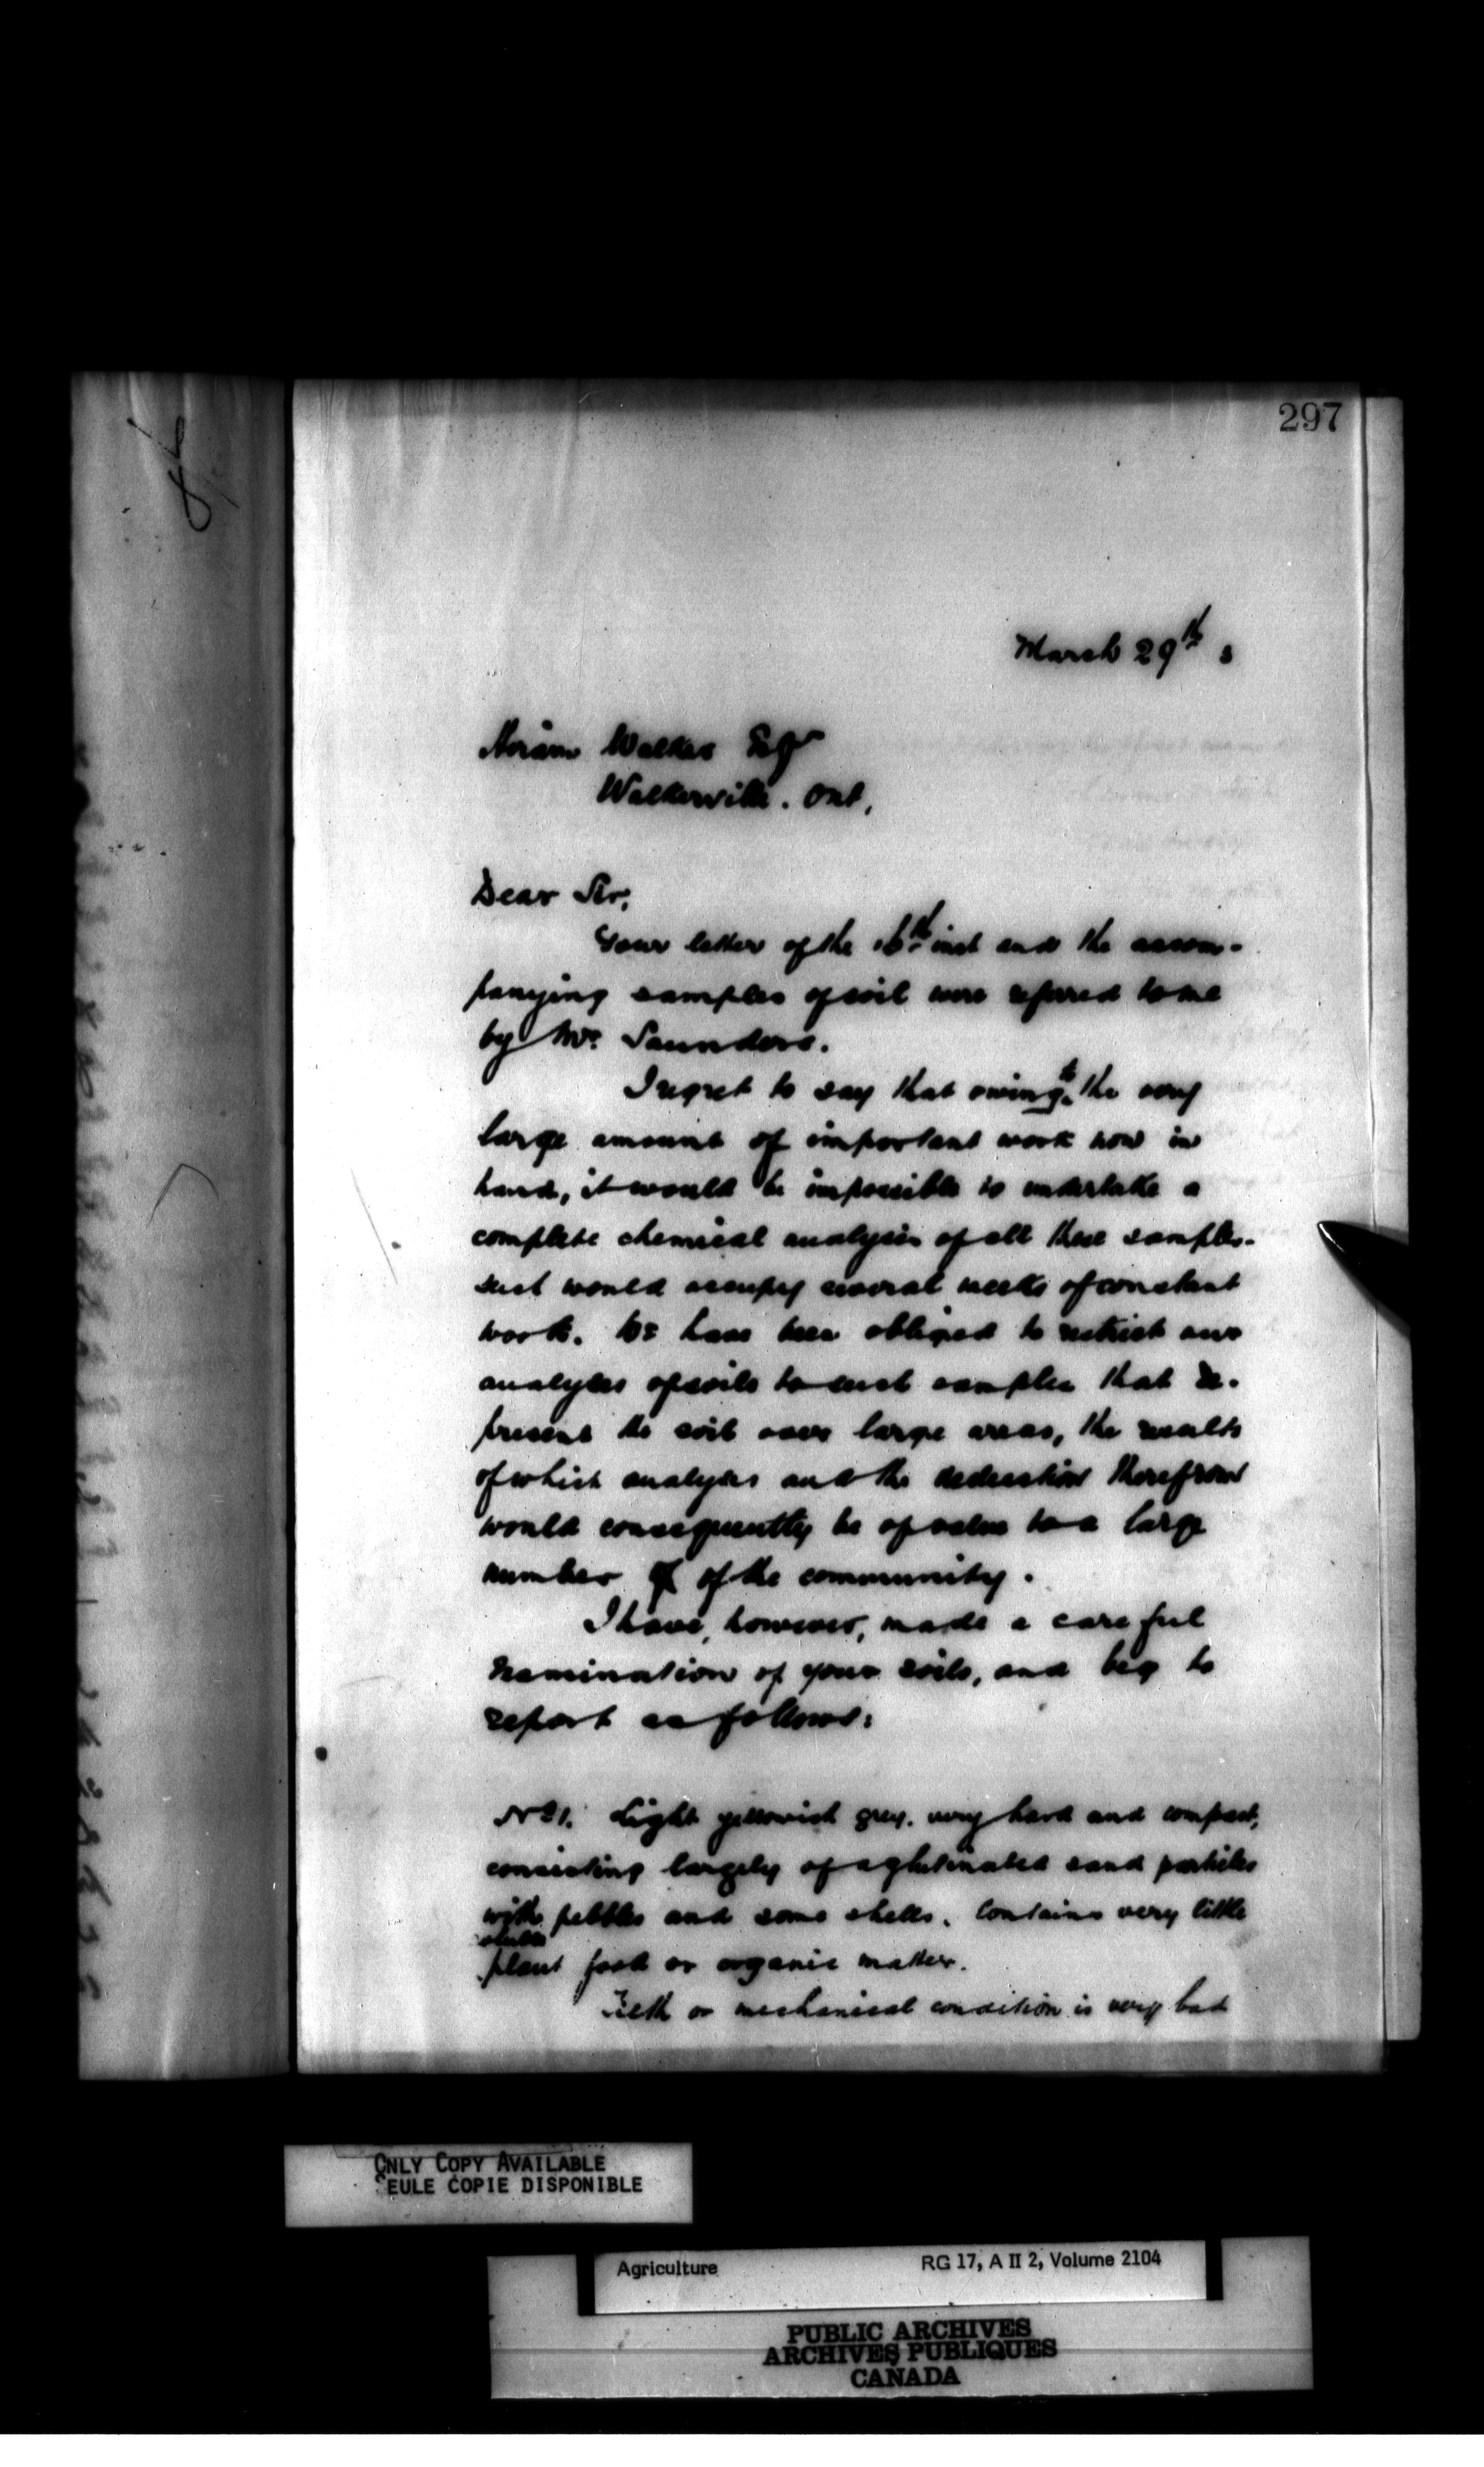 297
March 29th
Hiram Walker Esqr
Walkerville. Ont,
Dear Sir,
Your letter of the 16th inst and the accom-
panying samples of soil were referred to me
by Mr. Saunders.
I regret to say that owing to the very
large amount of important work now in
hand, it would be impossible to undertake a
complete chemical analysis of all these samples.
such would occupy several weeks of constant
work. We have been obliged to restrict our
analyses of soils to such samples that re-
present the soil over large areas, the results
of which analyses and the deductions therefrom
would consequently be of value to a large
number of of the community.
I have, however, made a careful
examination of your soils, and beg to
report as follows:
No 1. Light yellowish grey. very hard and compact,
consisting largely of aglutinated sand particles
with pebbles and some shells. Contains very little
plant food or organic matter.
Tilth or mechanical condition is very bad
ONLY COPY AVAILABLE
SEULE COPIE DISPONIBLE
Agriculture RG 17, A II 2, Volume 2104
PUBLIC ARCHIVES
ARCHIVES PUBLIQUES
CANADA